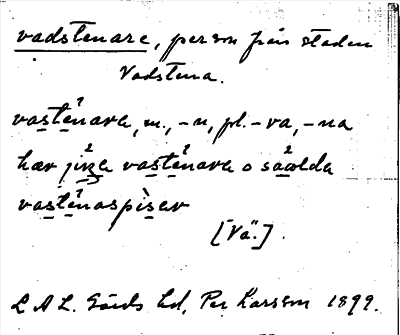 vadstenare, person från staden
Vadstena.
vastenara, m., -n, pl. -ra, -na
hær vastenara o
vastenaspisar
[Vä.].
L A L. Gårds hd, Per Larsson 1899.